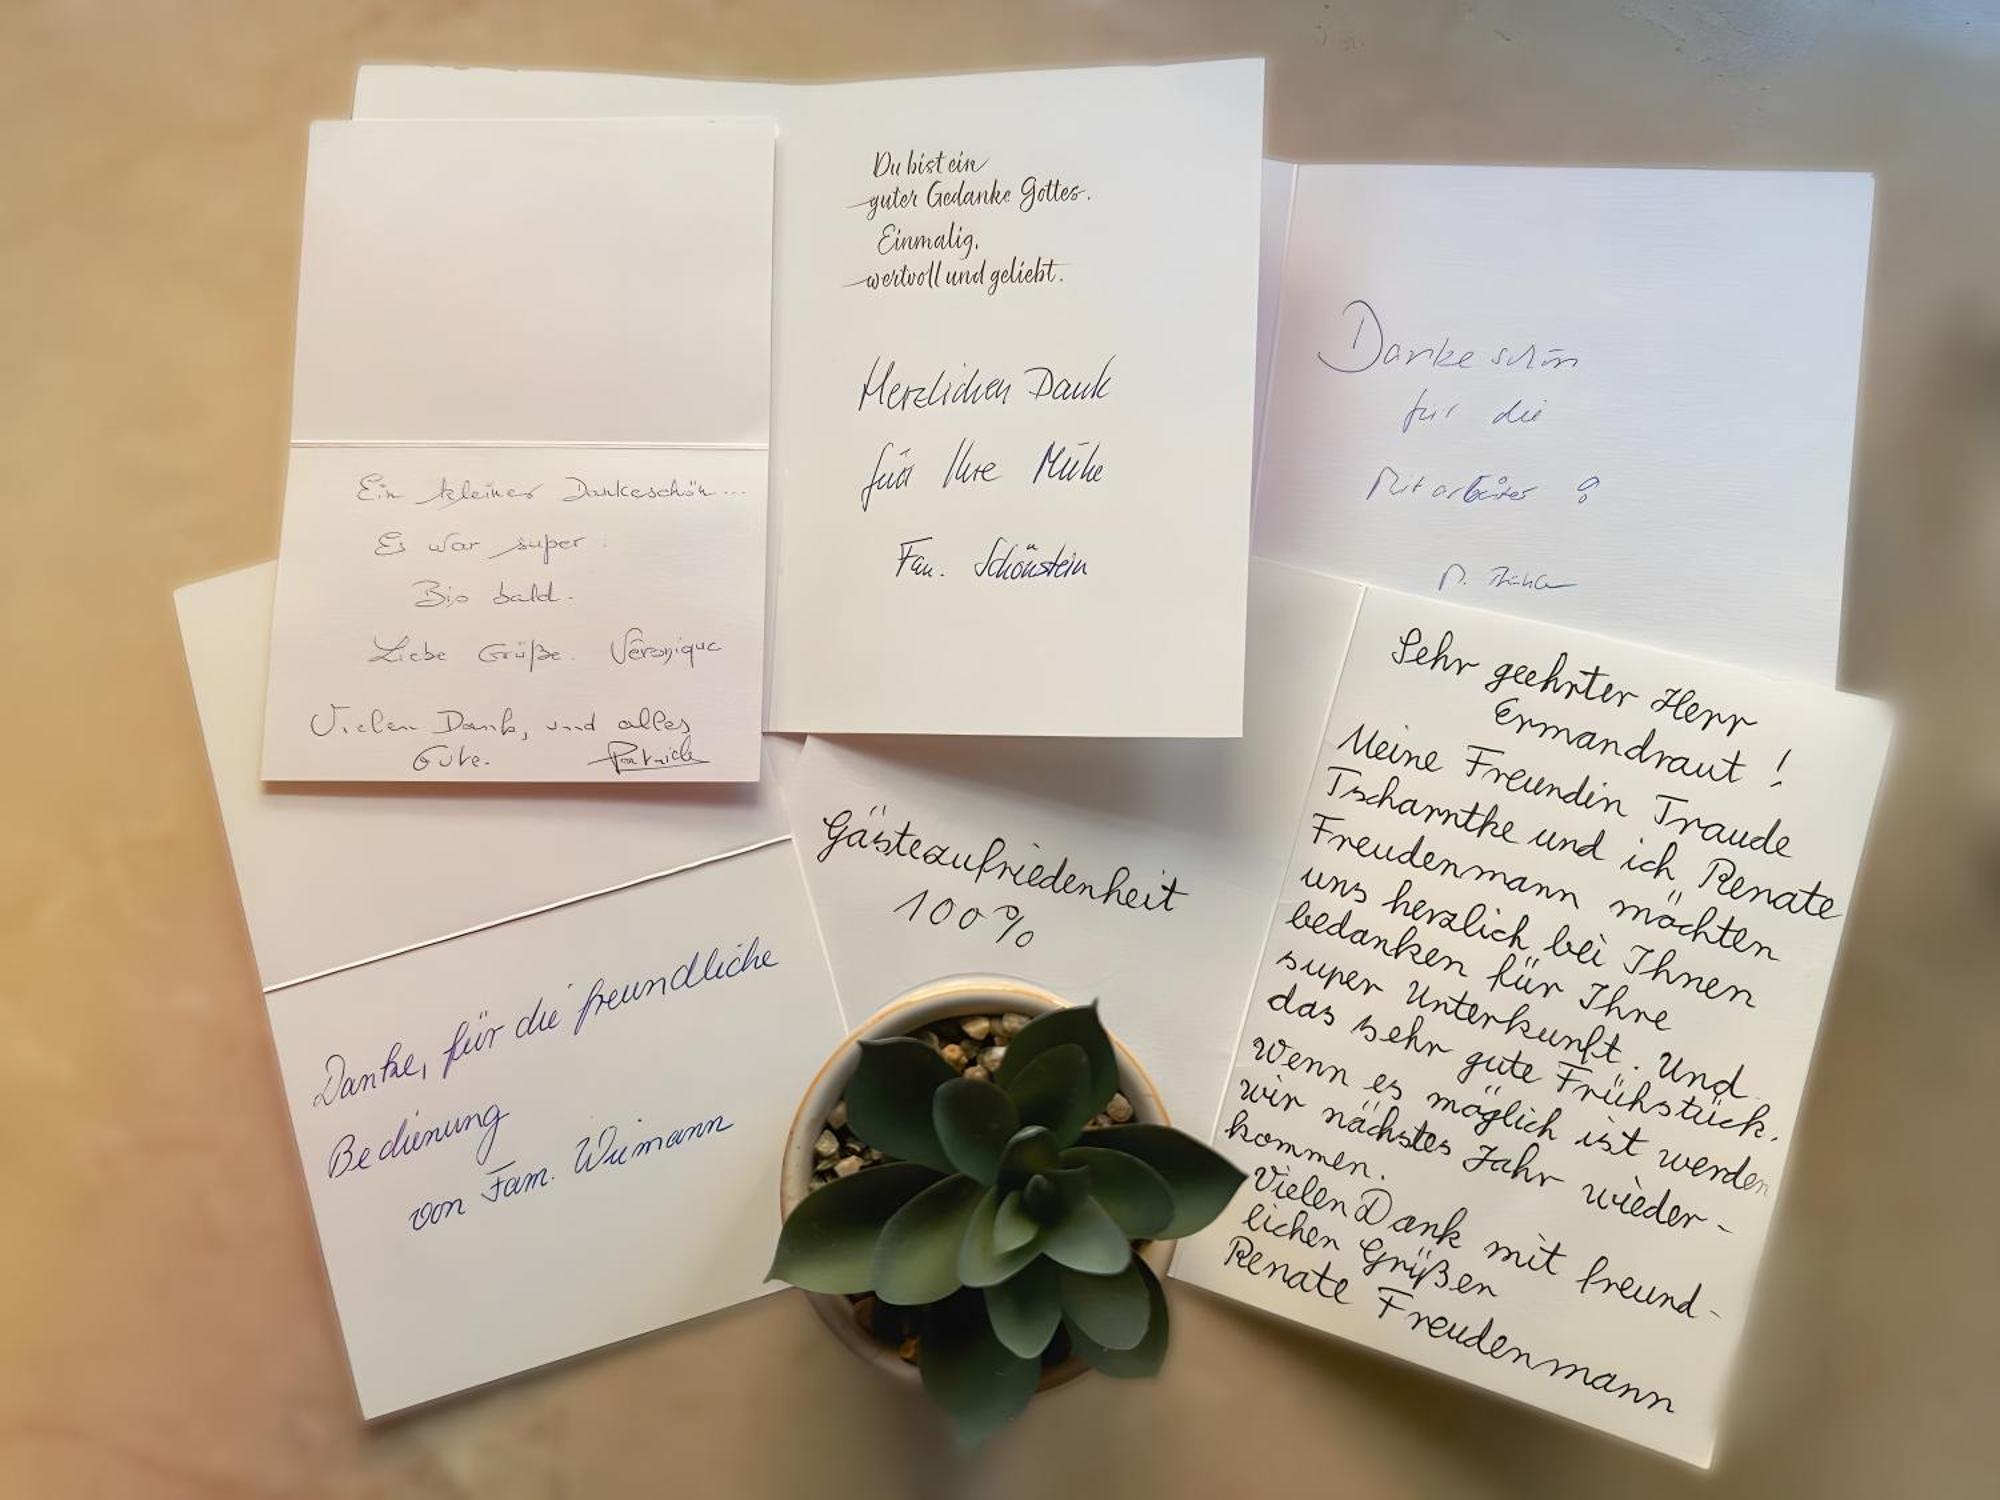 Ein kleines Dankeschön...
Es war super!
Bis bald.
Liebe Grüße. Véronique
Vielen Dank, und alles
Gute. Patrick
Du bist ein
guter Gedanke Gottes.
Einmalig,
wertvoll und geliebt.
Herzlichen Dank
für Ihre Mühe
Fam. Schönstein
Danke schön
für die
Mitarbeiter
Danke, für die freundliche
Bedienung
von Fam. Wiemann
Gästezufriedenheit
100%
Sehr geehrter Herr
Ermandraut !
Meine Freundin Traude
Tscharntke und ich Renate
Freudenmann möchten
uns herzlich bei Ihnen
bedanken für Ihre
super Unterkunft. Und
das sehr gute Frühstück.
Wenn es möglich ist werden
wir nächstes Jahr wieder-
kommen.
Vielen Dank mit freund-
lichen Grüßen
Renate Freudenmann